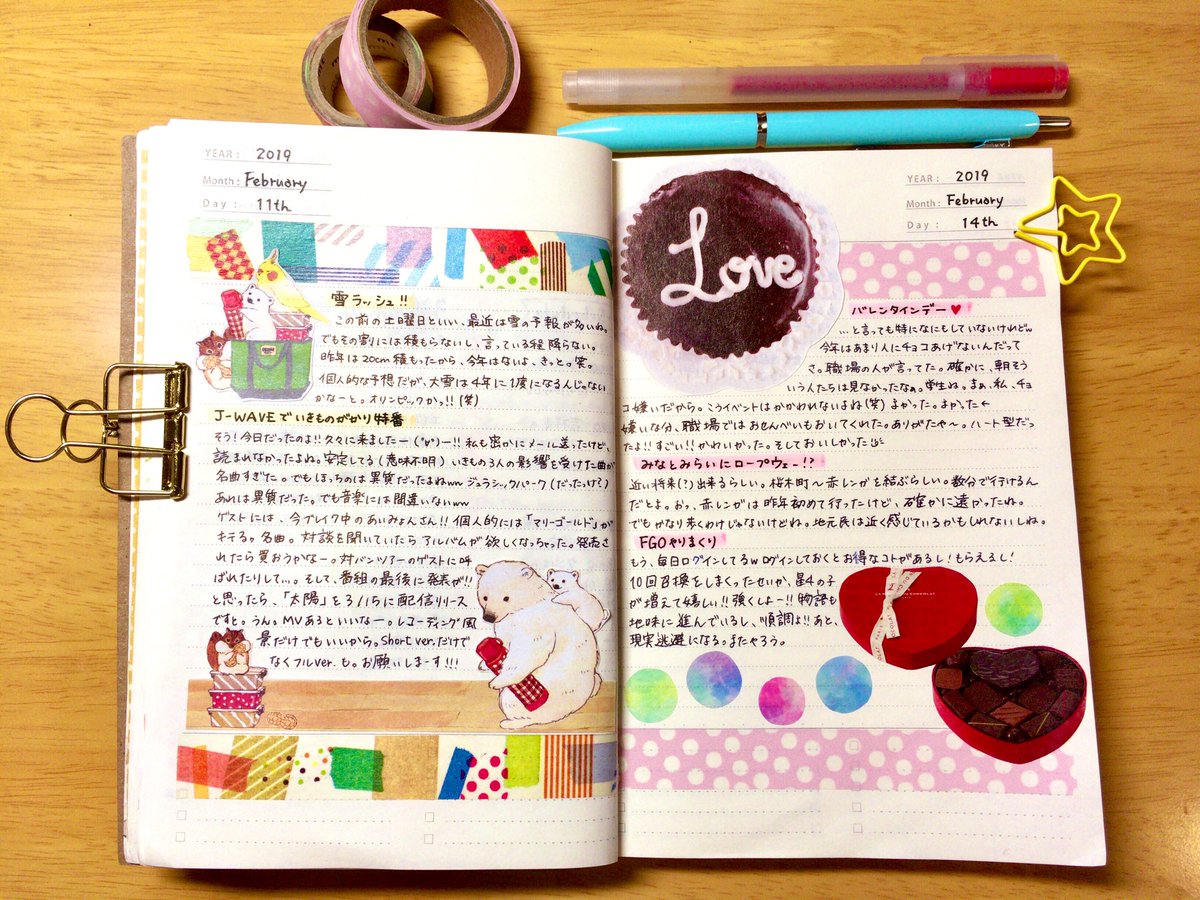 YEAR : 2019
Month : February
Day : 11th
雪ラッシュ!!
この前の土曜日といい、最近は雪の予報が多いね。
でもその割には積もらないし、言っている程降らない。
昨年は20cm積もったから、今年はないよ、きっと。笑
個人的な予想だが、大雪は4年に1度になるんじゃない
かなーと。オリンピックかっ!!(笑)
J-WAVEでいきものがかり特番
そう!今日だったのよ!!久々に来ましたー(°∀°)ー!!私も密かにメール送ったけど、
読まれなかったよね。安定してる(意味不明)いきもの3人の影響を受けた曲が
名曲すぎた。でもほっちのは異質だったよねwwジュラシックパーク(だったっけ?)
あれは異質だった。でも音楽には間違いないww
ゲストには、今ブレイク中のあいみょんさん!!個人的には「マリーゴールド」が
キテる。名曲。対談を聞いていたらアルバムが欲しくなっちゃった。発売さ
れたら買おうかなー。対バンツアーのゲストに呼
ばれたりして…。そして、番組の最後に発表が!!
と思ったら、「太陽」を3/15に配信リリース
ですと。うん。MVあるといいなー。レコーディング風
景だけでもいいから。Short ver.だけで
なくフルver.も。お願いしまーす!!!
YEAR : 2019
Month : February
Day : 14th
Love
バレンタインデー♥
…と言っても特になにもしていないけれどw
今年はあまり人にチョコあげないんだって
さ。職場の人が言ってた。確かに、朝そう
いう人たちは見なかったなぁ。学生ね。まぁ、私、チョ
コ嫌いだから。こうイベントはかかわれないよね(笑)よかった。よかった←
嫌いな分、職場ではおせんべいもおいてくれた。ありがたや〜。ハート型だっ
たよ!!すごい!!かわいかった。そしておいしかった
みなとみらいにロープウェー!?
近い将来(?)出来るらしい。桜木町〜赤レンガを結ぶらしい。数分で行けるん
だとよ。おっ、赤レンガは昨年初めて行ったけど、確かに遠かったね。
でもかなり歩くわけじゃないけどね。地元民は近く感じているかもしれないしね。
FGOやりまくり
もう、毎日ログインしてるwログインしておくとお得なコトがあるし!もらえるし!
10回召喚をしまくったせいか、星4の子
が増えて嬉しい!!強くしよー!!物語も
地味に進んでいるし、順調よ!!あと、
現実逃避になる。またやろう。